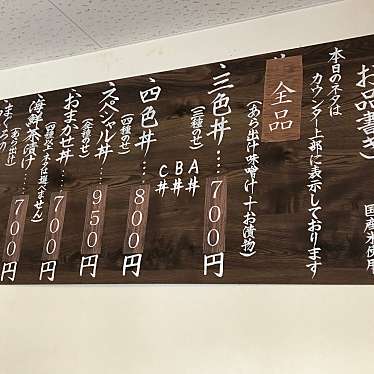 お品書き
国産米使用
本日のネタは
カウンター上部に表示しております
全品
(あら出汁味噌汁+お漬物)
、三色丼…700円
(三種のせ)
A丼
B丼
C丼
、四色丼…800円
(四種のせ)
、スペシャル丼…950円
(全種のせ)
、おまかせ丼…700円
、海鮮茶漬け…700円
(あら出汁